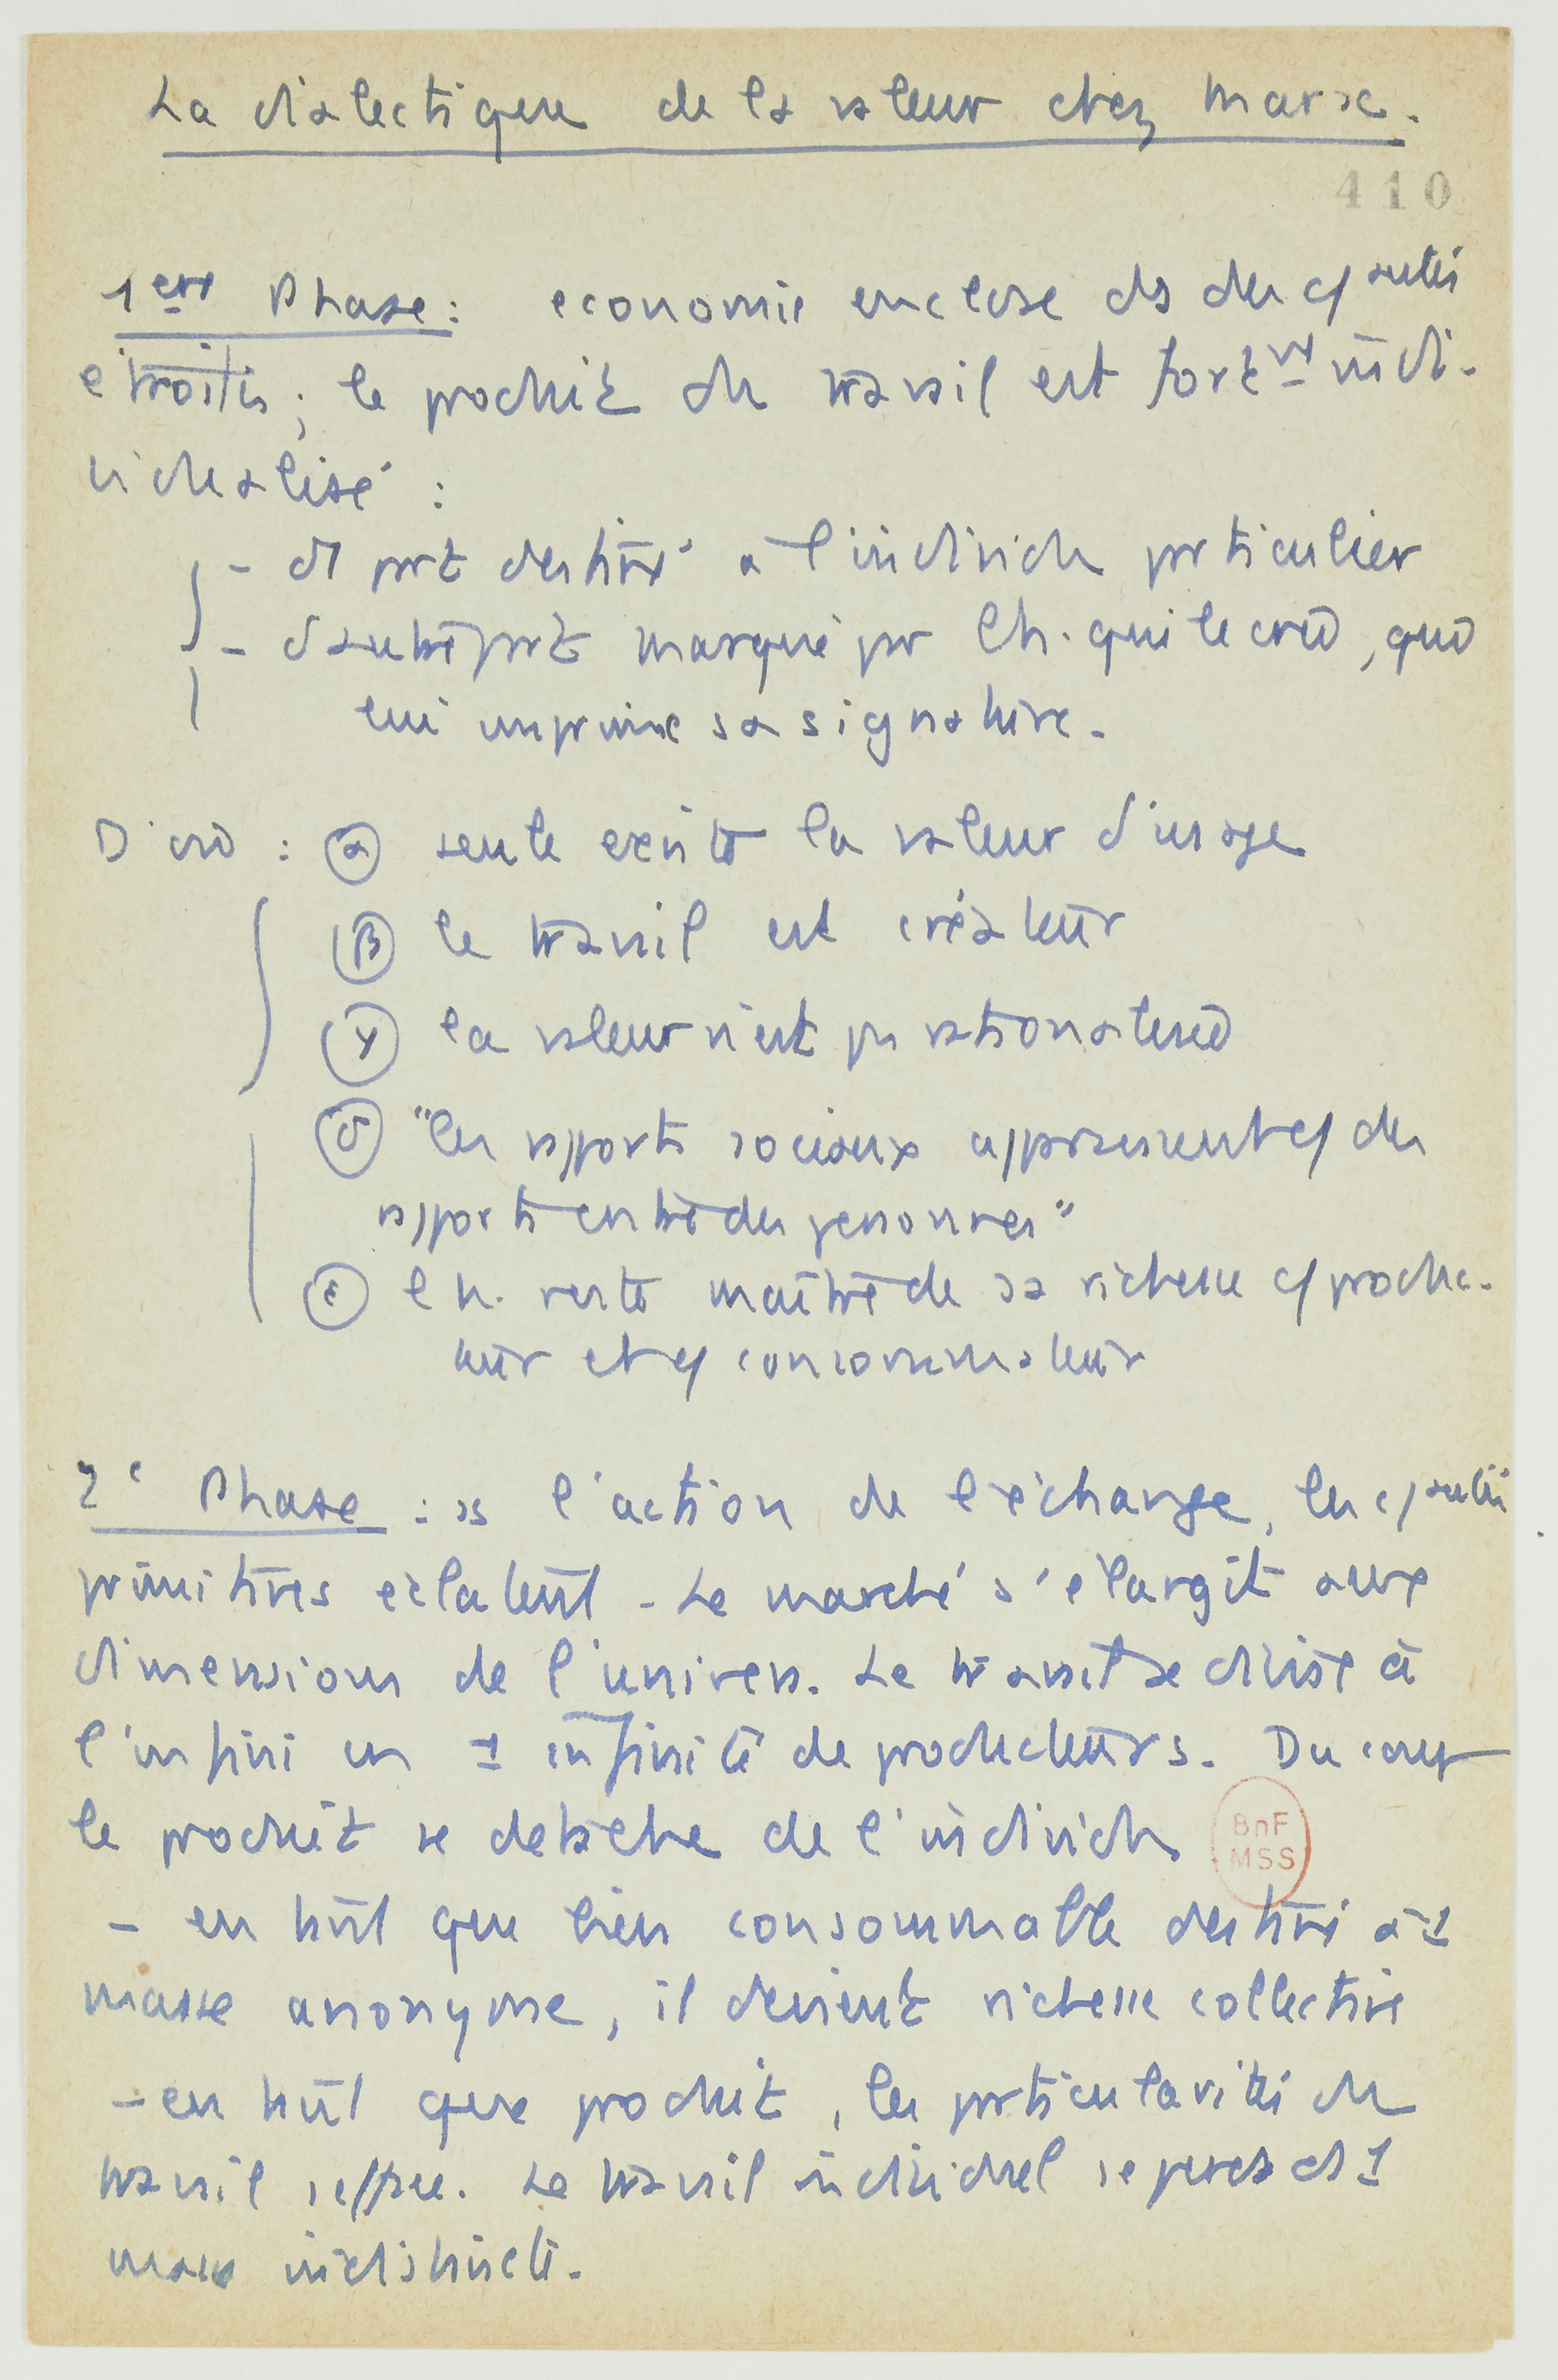 La dialectique de la valeur chez Marx.
410
1ere Phase : economie enclose ds des c/autés
étroites ; le produit du travail est fortmt indi-
vidualisé :
- d' part destiné a l'individu particulier
- d'autre part marqué par l'h. qui le crée, qui
lui imprime sa signature.
D'où : α seule existe la valeur d'usage
β le travail est créateur
γ la valeur n'est pas rationalisée
δ "les rapports sociaux apparaissent c/ des
rapports entre des personnes"
ε l'h. reste maître de sa richesse c/ produc-
teur et c/ consommateur
2e Phase : ss l'action de l'échange, les c/autés
primitives éclatent - Le marché s'élargit aux
dimensions de l'univers. Le travail se divise à
l'infini en 1 infinité de producteurs. Du coup
le produit se detache de l'individu
BnF
MSS
- en tant que bien consommable destiné à 1
masse anonyme, il devient richesse collective
- en tant que produit, les particularités du
travail s'effacent. Le travail individuel se perd ds 1
masse indistincte.